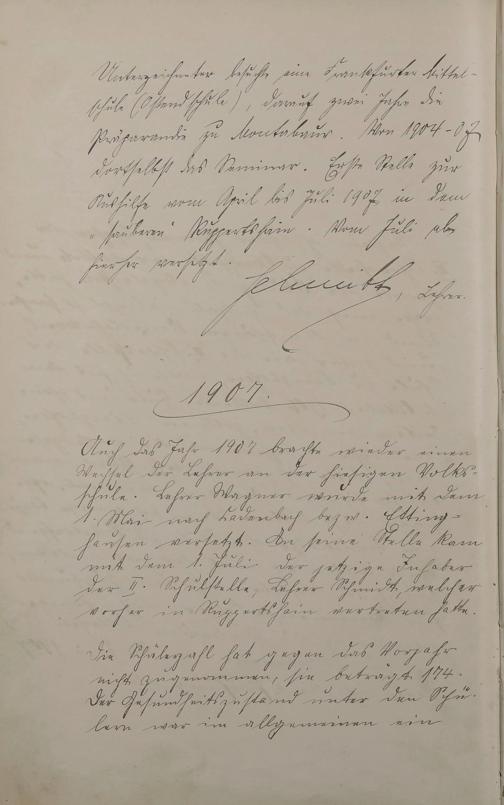 Unterzeichneter besuchte eine Frankfurter Mittel-
schule (Ostendschule), darauf zwei Jahre die
Präparandie zu Montabaur. Von 1904-07
dortselbst das Seminar. Erste Stelle zur
Aushilfe vom April bis Juli 1907 in dem
"sauberen" Ruppertshain. Vom Juli ab
hierher versetzt.
Schmidt, Lehrer.
1907.
Auch das Jahr 1907 brachte wieder einen
Wechsel der Lehrer an der hiesigen Volks-
schule. Lehrer Wagner wurde mit dem
1. Mai nach Ladenbach bezw. Etting-
hausen versetzt. An seine Stelle kam
mit dem 1. Juli der jetzige Inhaber
der II. Schulstelle, Lehrer Schmidt, welcher
vorher in Ruppertshain vertreten hatte.
Die Schülerzahl hat gegen das Vorjahr
nicht zugenommen, sie beträgt 174.
Der Gesundheitszustand unter den Schü-
lern war im allgemeinen ein